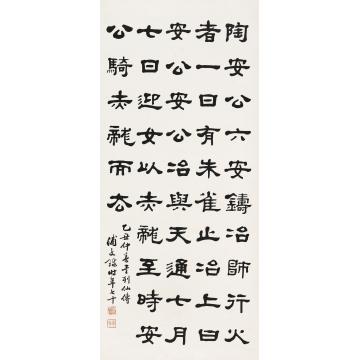 陶安公六安鑄冶師行火
者一日有朱雀止冶上曰
安公安公冶與天通七月
七日迎女以赤龍至時安
公騎赤龍而去
乙丑仲春列仙傳
時年七十